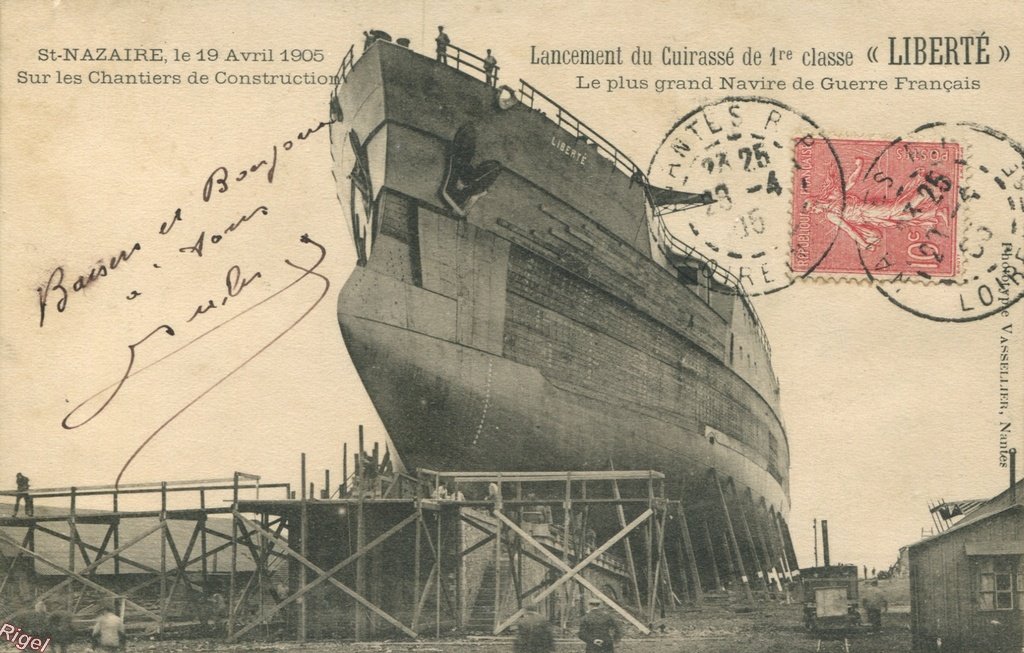 St-NAZAIRE, le 19 Avril 1905
Sur les Chantiers de Construction
Lancement du Cuirassé de 1re classe « LIBERTÉ »
Le plus grand Navire de Guerre Français
LIBERTÉ
Baisers et Bonjour
à tous
NANTES R.P.
23 25
29 -4
05
LOIRE
POSTES
RÉPUBLIQUE FRANÇAISE
10
LOIRE
Phototypie VASSELLIER, Nantes
Rigel